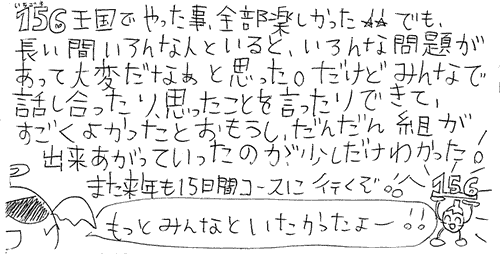 いちごろ
156王国でやった事、全部楽しかった☆☆でも、
長い間いろんな人といると、いろんな問題が
あって大変だなぁと思った。だけどみんなで
話し合ったり、思ったことを言ったりできて、
すごくよかったとおもうし、だんだん組が
出来あがっていったのが少しだけわかった。
また来年も15日間コースに行くぞ!!
156
もっとみんなといたかったよー!!